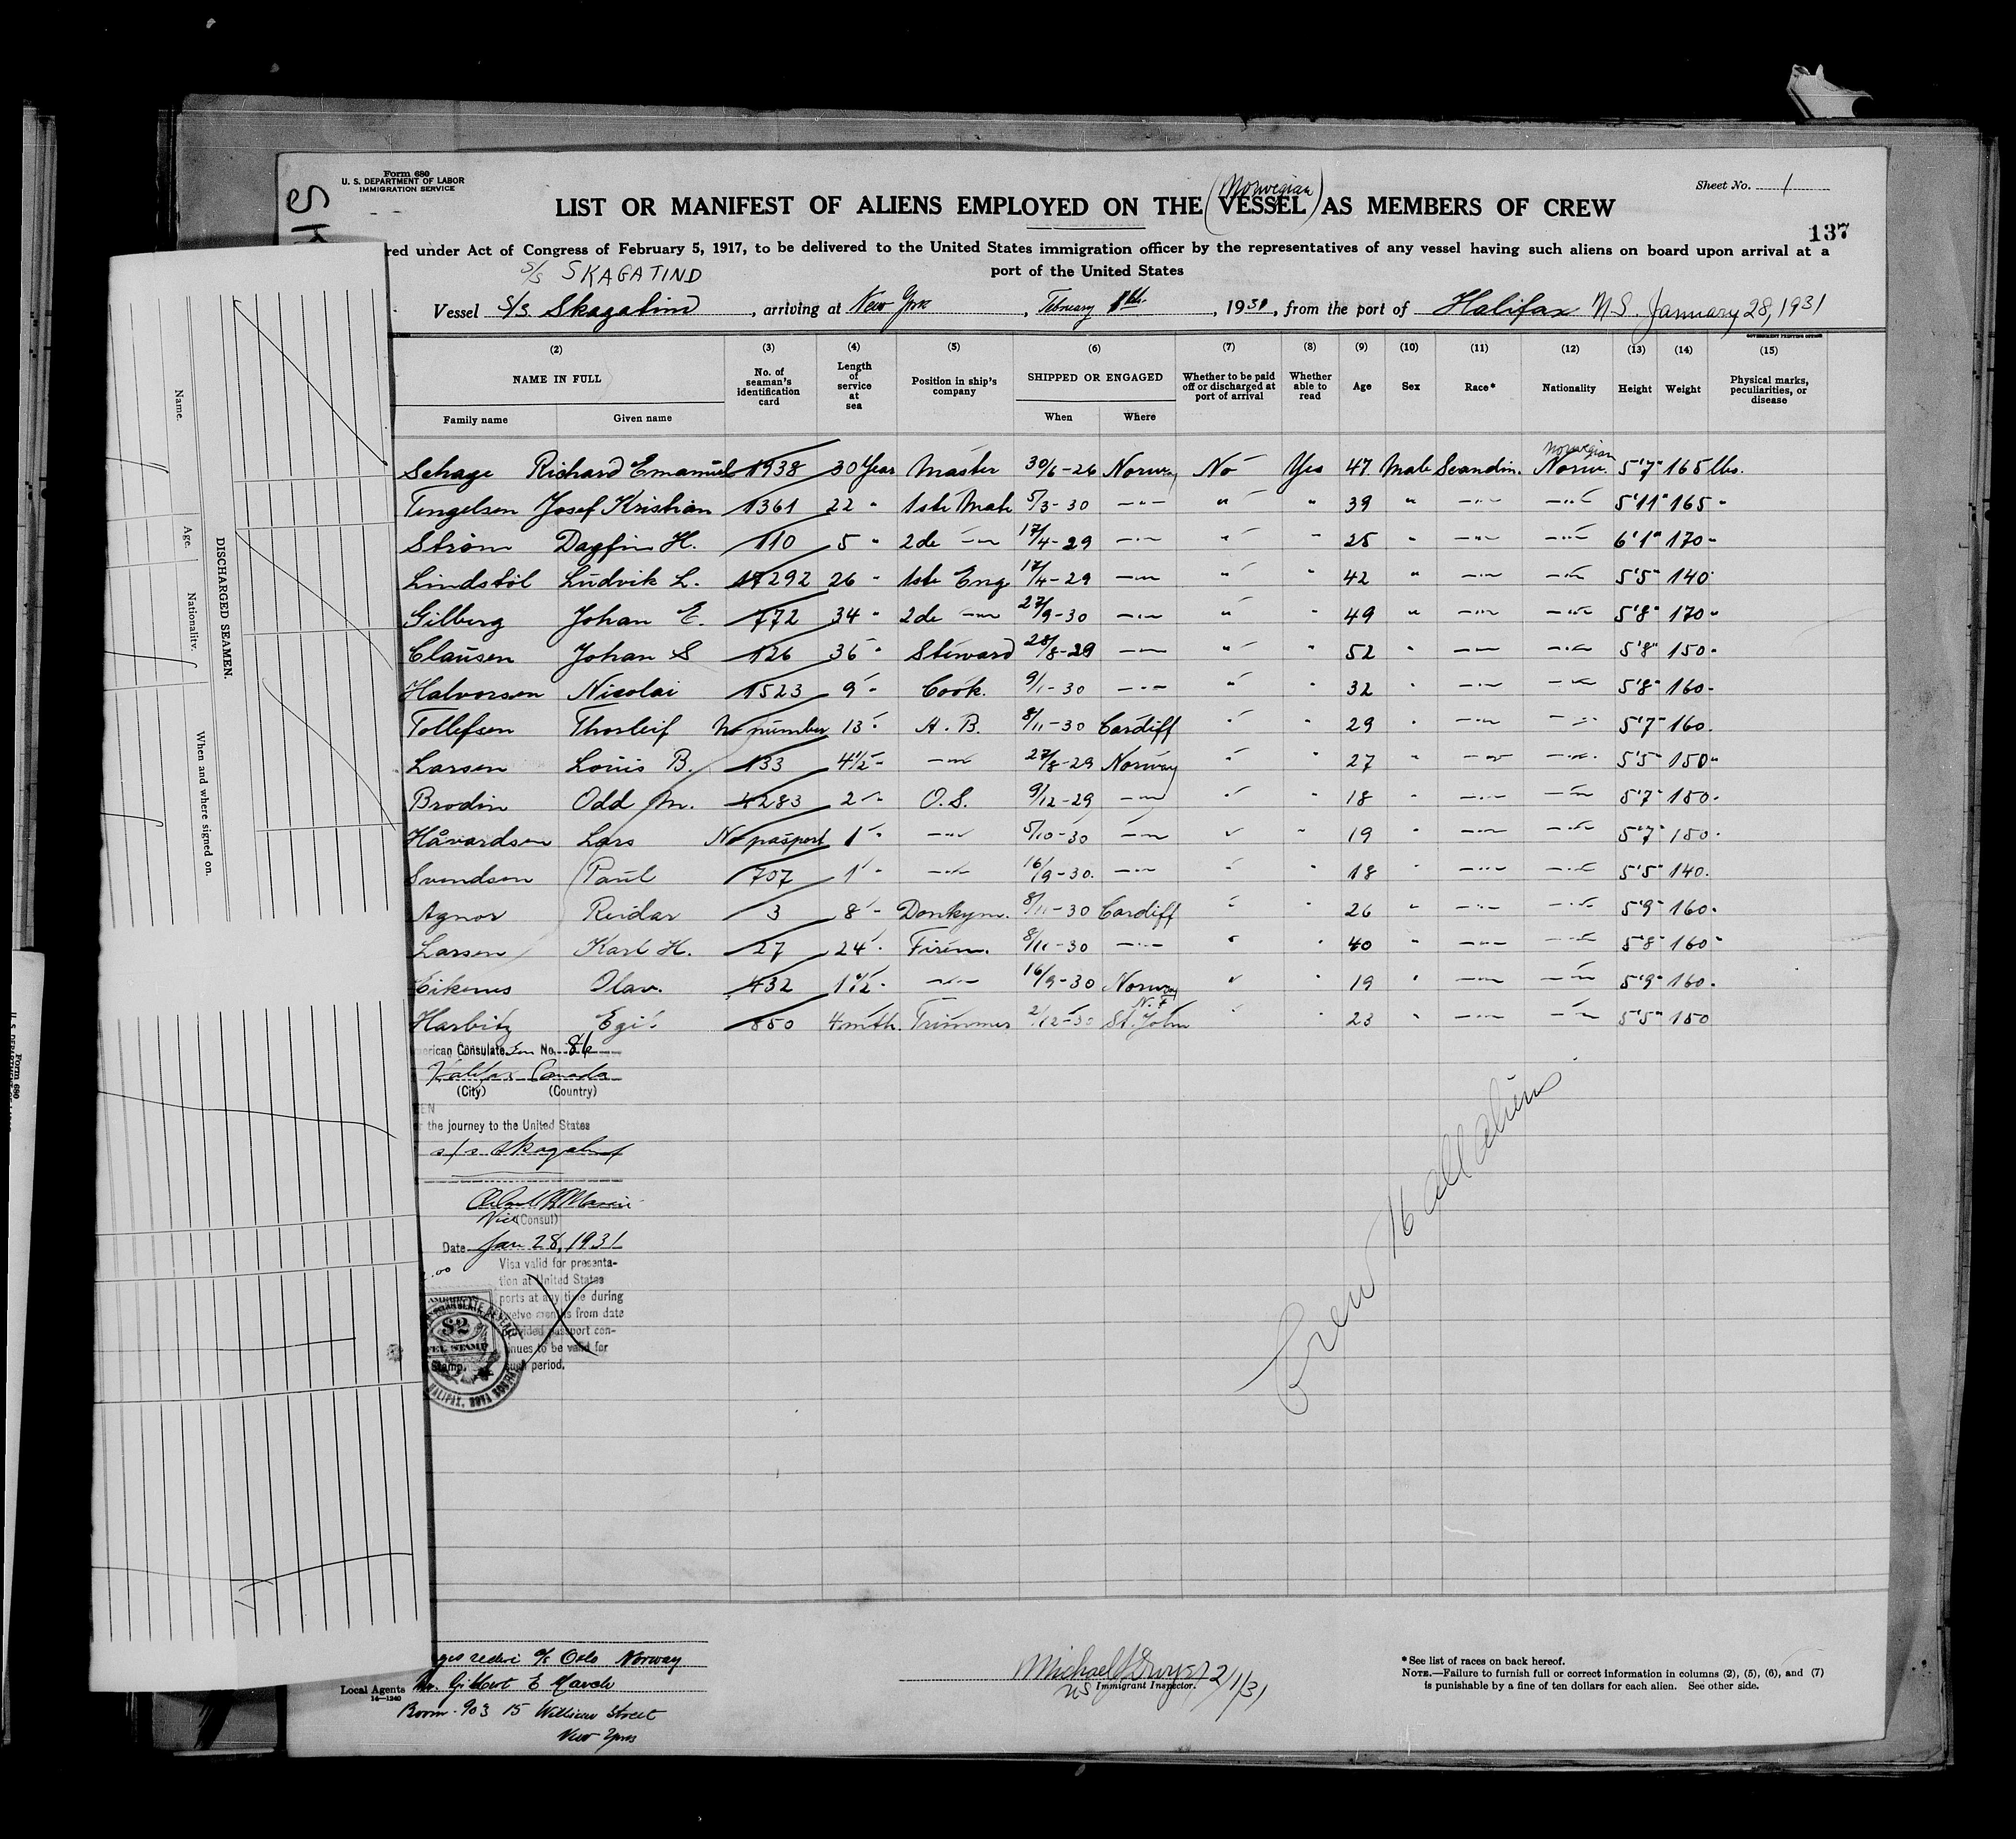 Form 680
U. S. DEPARTMENT OF LABOR
IMMIGRATION SERVICE
Sheet No. 1
SK
(Norwegian)
LIST OR MANIFEST OF ALIENS EMPLOYED ON THE VESSEL AS MEMBERS OF CREW
137
red under Act of Congress of February 5, 1917, to be delivered to the United States immigration officer by the representatives of any vessel having such aliens on board upon arrival at a
port of the United States
S/S SKAGATIND
Vessel S/S Skagatind, arriving at New York, February 1st, 1931, from the port of Halifax N.S. January 28, 1931
GOVERNMENT PRINTING OFFICE
(2) (3) (4) (5) (6) (7) (8) (9) (10) (11) (12) (13) (14) (15)
NAME IN FULL No. of seaman's identification card Length of service at sea Position in ship's company SHIPPED OR ENGAGED Whether to be paid off or discharged at port of arrival Whether able to read Age Sex Race* Nationality Height Weight Physical marks, peculiarities, or disease
Family name Given name When Where
Norwegian
Sehage Richard Emanuel 1938 30 Year Master 30/6-26 Norway No Yes 47 Male Scandin. Norw. 5'7" 165 lbs.
Tengelsen Josef Kristian 1361 22 " 1ste Mate 5/3-30 -"- " " 39 " -"- -"- 5'11" 165 "
Strøm Dagfin H. 110 5 " 2de -"- 17/4-29 -"- " " 25 " -"- -"- 6'1" 170 "
Lindstøl Ludvik L. 17292 26 " 1ste Eng. 17/4-29 -"- " " 42 " -"- -"- 5'5" 140 "
Gilberg Johan E. 772 34 " 2de -"- 27/9-30 -"- " " 49 " -"- -"- 5'8" 170 "
Clausen Johan S 126 36 " Steward 28/8-29 -"- " " 52 " -"- -"- 5'8" 150 "
Halvorsen Nicolai 1523 9 " Cook. 9/1-30 -"- " " 32 " -"- -"- 5'8" 160 "
Tollefsen Thorleif No number 13 " A. B. 8/11-30 Cardiff " " 29 " -"- -"- 5'7" 160 "
Larsen Louis B. 133 4½ " -"- 27/8-29 Norway " " 27 " -"- -"- 5'5" 150 "
Brodin Odd M. 4283 2 " O.S. 9/12-29 -"- " " 18 " -"- -"- 5'7" 150 "
Håvardsen Lars No pasport 1 " -"- 5/10-30 -"- " " 19 " -"- -"- 5'7" 150 "
Svendsen Paul 707 1 " -"- 16/9-30 -"- " " 18 " -"- -"- 5'5" 140 "
Agnor Reidar 3 8 " Donkym. 8/11-30 Cardiff " " 26 " -"- -"- 5'9" 160 "
Larsen Karl H. 27 24 " Firem. 8/11-30 -"- " " 40 " -"- -"- 5'8" 160 "
Eikenes Olav. 432 1½ " -"- 16/9-30 Norway " " 19 " -"- -"- 5'9" 160 "
N. F
Harbitz Egil 850 4 mth. Trimmer 2/12-30 St. John " " 23 " -"- -"- 5'5" 150
American Consulate No. 86
Halifax Canada
(City) (Country)
the journey to the United States
s/s Skagatind
Vice (Consul)
Date Jan 28, 1931
Visa valid for presenta-
tion at United States
ports at any time during
twelve months from date
provided passport con-
tinues to be valid for
such period.
AMERICAN
$2
FEE STAMP
Stamp.
HALIFAX, NOVA SCOTIA
Crew 16 all aliens
Name.
Age.
Nationality.
When and where signed on.
DISCHARGED SEAMEN.
Form 680
rederi A/S Oslo Norway
Local Agents Mr. Gilbert E March
14—1240
Room 903 15 William Street
New York
US Immigrant Inspector. 2/1/31
*See list of races on back hereof.
NOTE.—Failure to furnish full or correct information in columns (2), (5), (6), and (7)
is punishable by a fine of ten dollars for each alien. See other side.